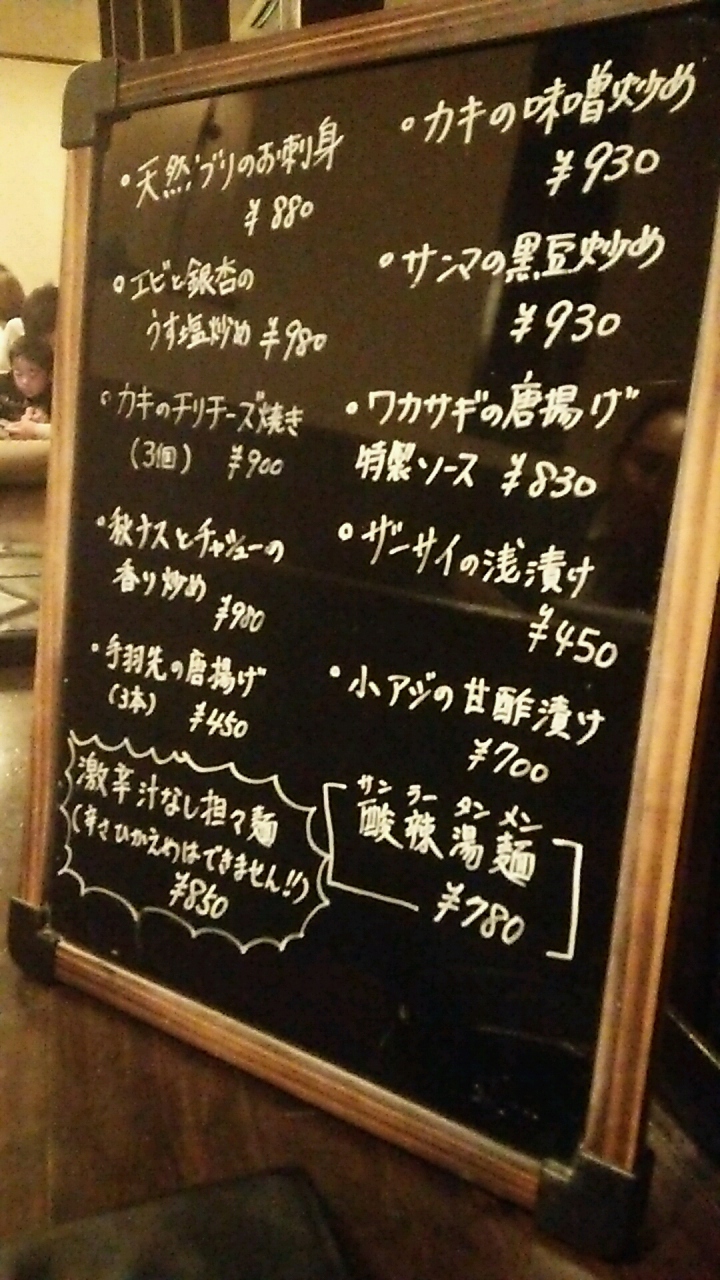 ・天然ブリのお刺身
¥880
・エビと銀杏の
うす塩炒め ¥980
・カキのチリチーズ焼き
(3個) ¥900
・秋ナスとチャシューの
香り炒め
¥980
・手羽先の唐揚げ
(3本) ¥450
激辛汁なし担々麺
(辛さひかえめはできません!!)
¥850
・カキの味噌炒め
¥930
・サンマの黒豆炒め
¥930
・ワカサギの唐揚げ
特製ソース ¥830
・ザーサイの浅漬け
¥450
・小アジの甘酢漬け
¥700
サンラータンメン
酸辣湯麺
¥780